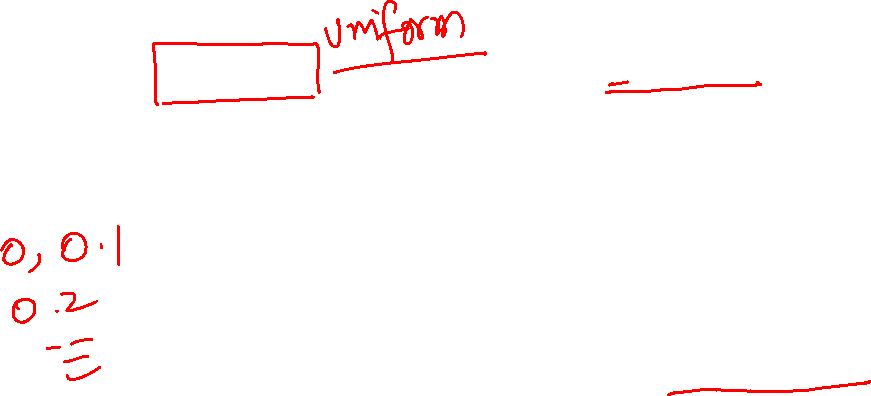 uniform
0, 0.1
0.2